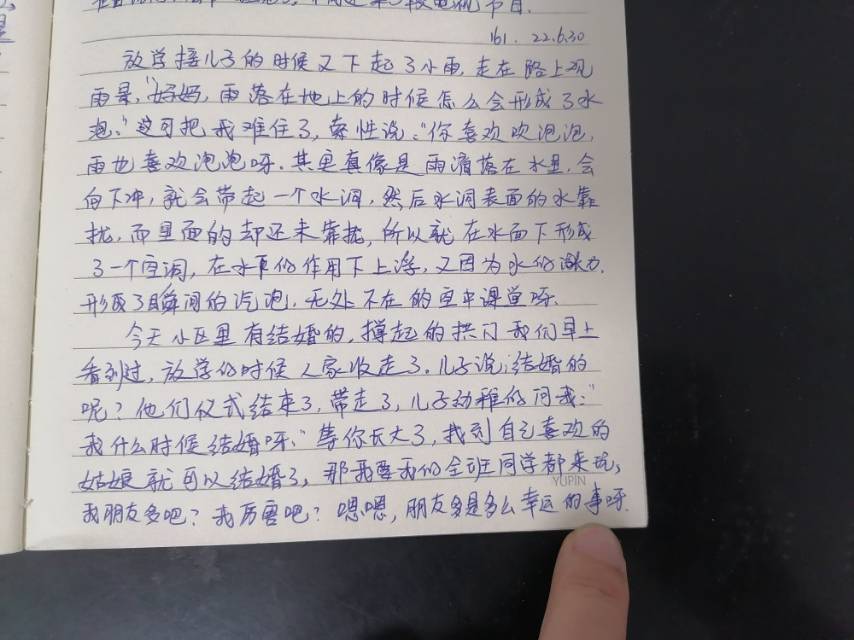 节目.
161. 22.6.30
放学接儿子的时候又下起了小雨,走在路上观
雨景,"妈妈,雨落在地上的时候怎么会形成了水
泡,"这可把我难住了,索性说:"你喜欢吹泡泡,
雨也喜欢泡泡呀.其实真像是雨滴落在水里,会
向下冲,就会带起一个水洞,然后水洞表面的水靠
拢,而里面的却还未靠拢,所以就在水面下形成
了一个空洞,在水的作用下上浮,又因为水的张力.
形成了瞬间的汽泡,无处不在的空中课堂呀.
今天小区里有结婚的,撑起的拱门我们早上
看到过,放学的时候人家收走了.儿子说:结婚的
呢?他们仪式结束了,带走了,儿子幼稚的问我:"
我什么时候结婚呀,"等你长大了,找到自己喜欢的
姑娘就可以结婚了,那我要我们全班同学都来玩,
我朋友多吧?我厉害吧?嗯嗯,朋友多是多么幸运的事呀.
YUPIN